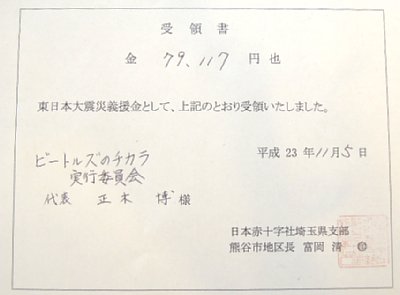 受領書
金 79,117 円也
東日本大震災義援金として、上記のとおり受領いたしました。
平成 23 年 11 月 5 日
ビートルズのチカラ
実行委員会
代表 正木 博 様
日本赤十字社埼玉県支部
熊谷市地区長 富岡 清